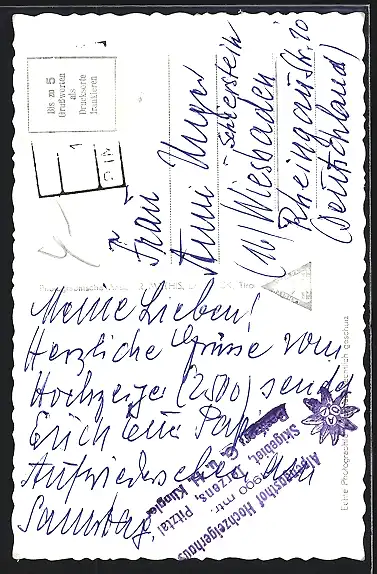 Bis zu 5
Grußworten
als
Drucksorte
frankieren
Frau
Anni Unger
Schierstein
(16) Wiesbaden
Rheingaustr. 20
(Deutschland)
Meine Lieben!
Herzliche Grüsse vom
Hochzeiger (2500) sendet
Erich
Aufwiedersehen am
Samstag.
Alpengasthof Hochzeigerhaus
1900 mtr.
Skigebiet, Jerzens, Pitztal
Besitzer: G. u. H. Klogler
Echte Photographie